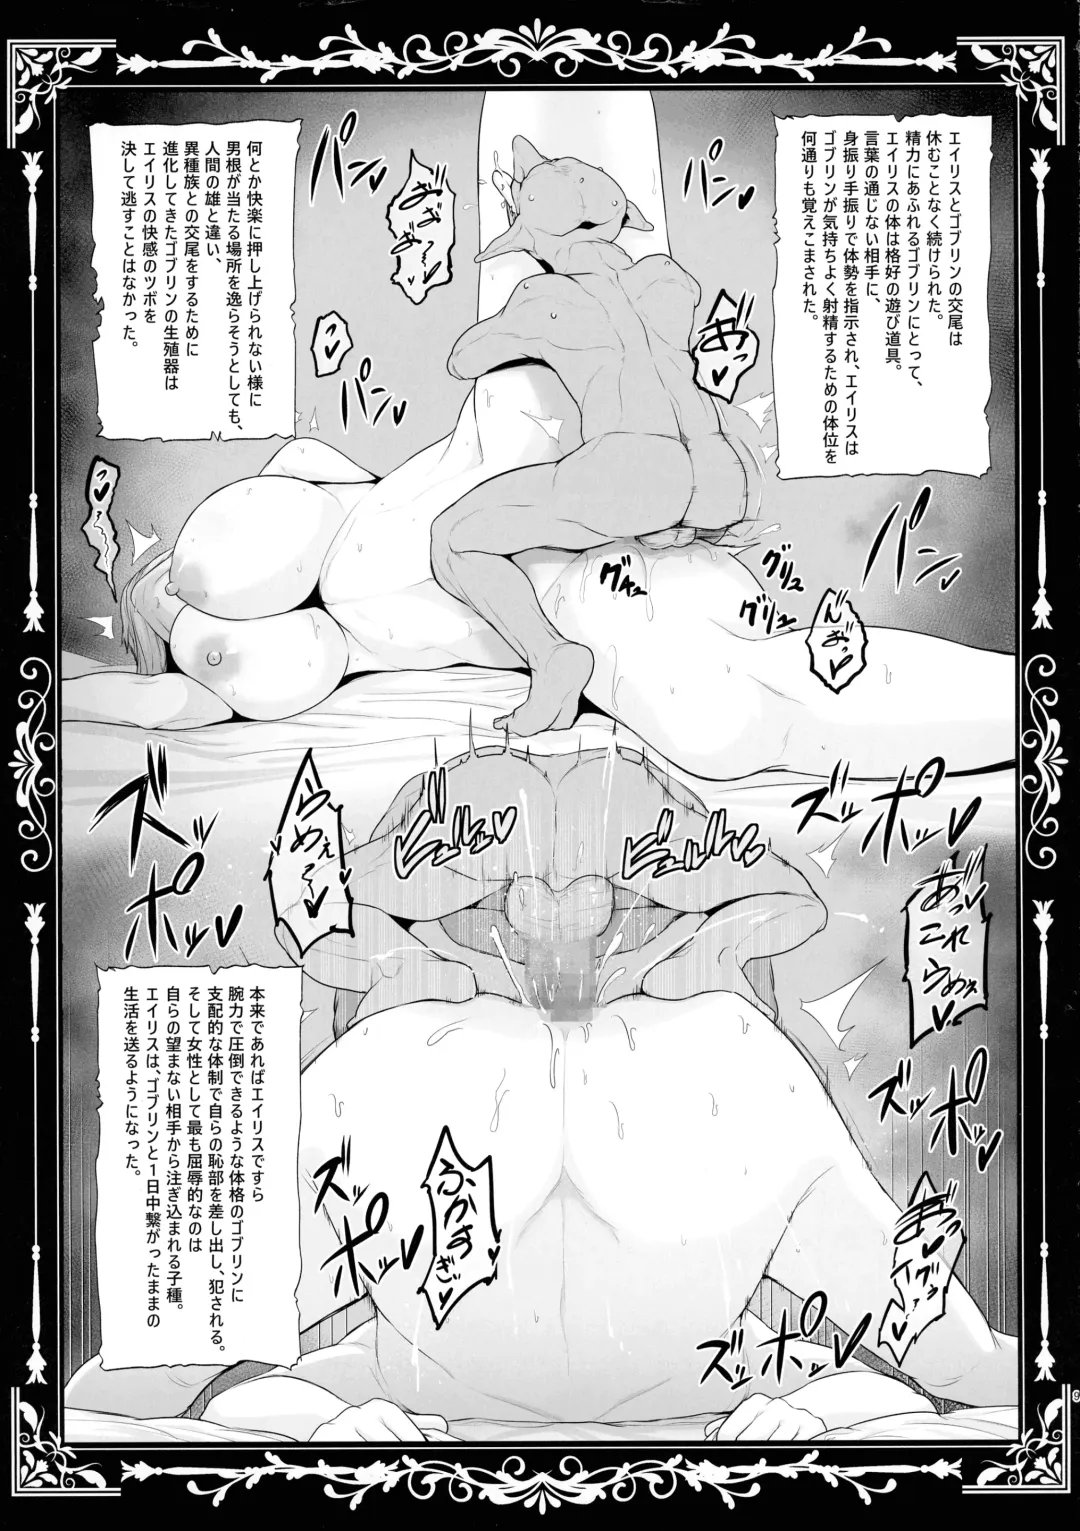 エイリスとゴブリンの交尾は
休むことなく続けられた。
精力にあふれるゴブリンにとって、
エイリスの体は格好の遊び道具。
言葉の通じない相手に、
身振り手振りで体勢を指示され、エイリスは
ゴブリンが気持ちよく射精するための体位を
何通りも覚えこまされた。
パンッ♥
パンッ♥
おぉ
おぉ
あっ
♥
何とか快楽に押し上げられない様に
男根が当たる場所を逸らそうとしても、
人間の雄と違い、
異種族との交尾をするために
進化してきたゴブリンの生殖器は
エイリスの快感のツボを
決して逃すことはなかった。
パンッ♥
パン♥
グリュ
グリュ
グチュ
んおっ♥
ズッポッ♥
ズッ
ポッ♥
ビュルルッ♥
ビュルルッ♥
らめぇ~♥
あっ♥
これ
らめぇ
ズッ
ポッ♥
ズッ
ポッ♥
ふかすぎ♥
イグぅ
ズッポッ♥
本来であればエイリスですら
腕力で圧倒できるような体格のゴブリンに
支配的な体制で自らの恥部を差し出し、犯される。
そして女性として最も屈辱的なのは
自らの望まない相手から注ぎ込まれる子種。
エイリスは、ゴブリンと1日中繋がったままの
生活を送るようになった。
9